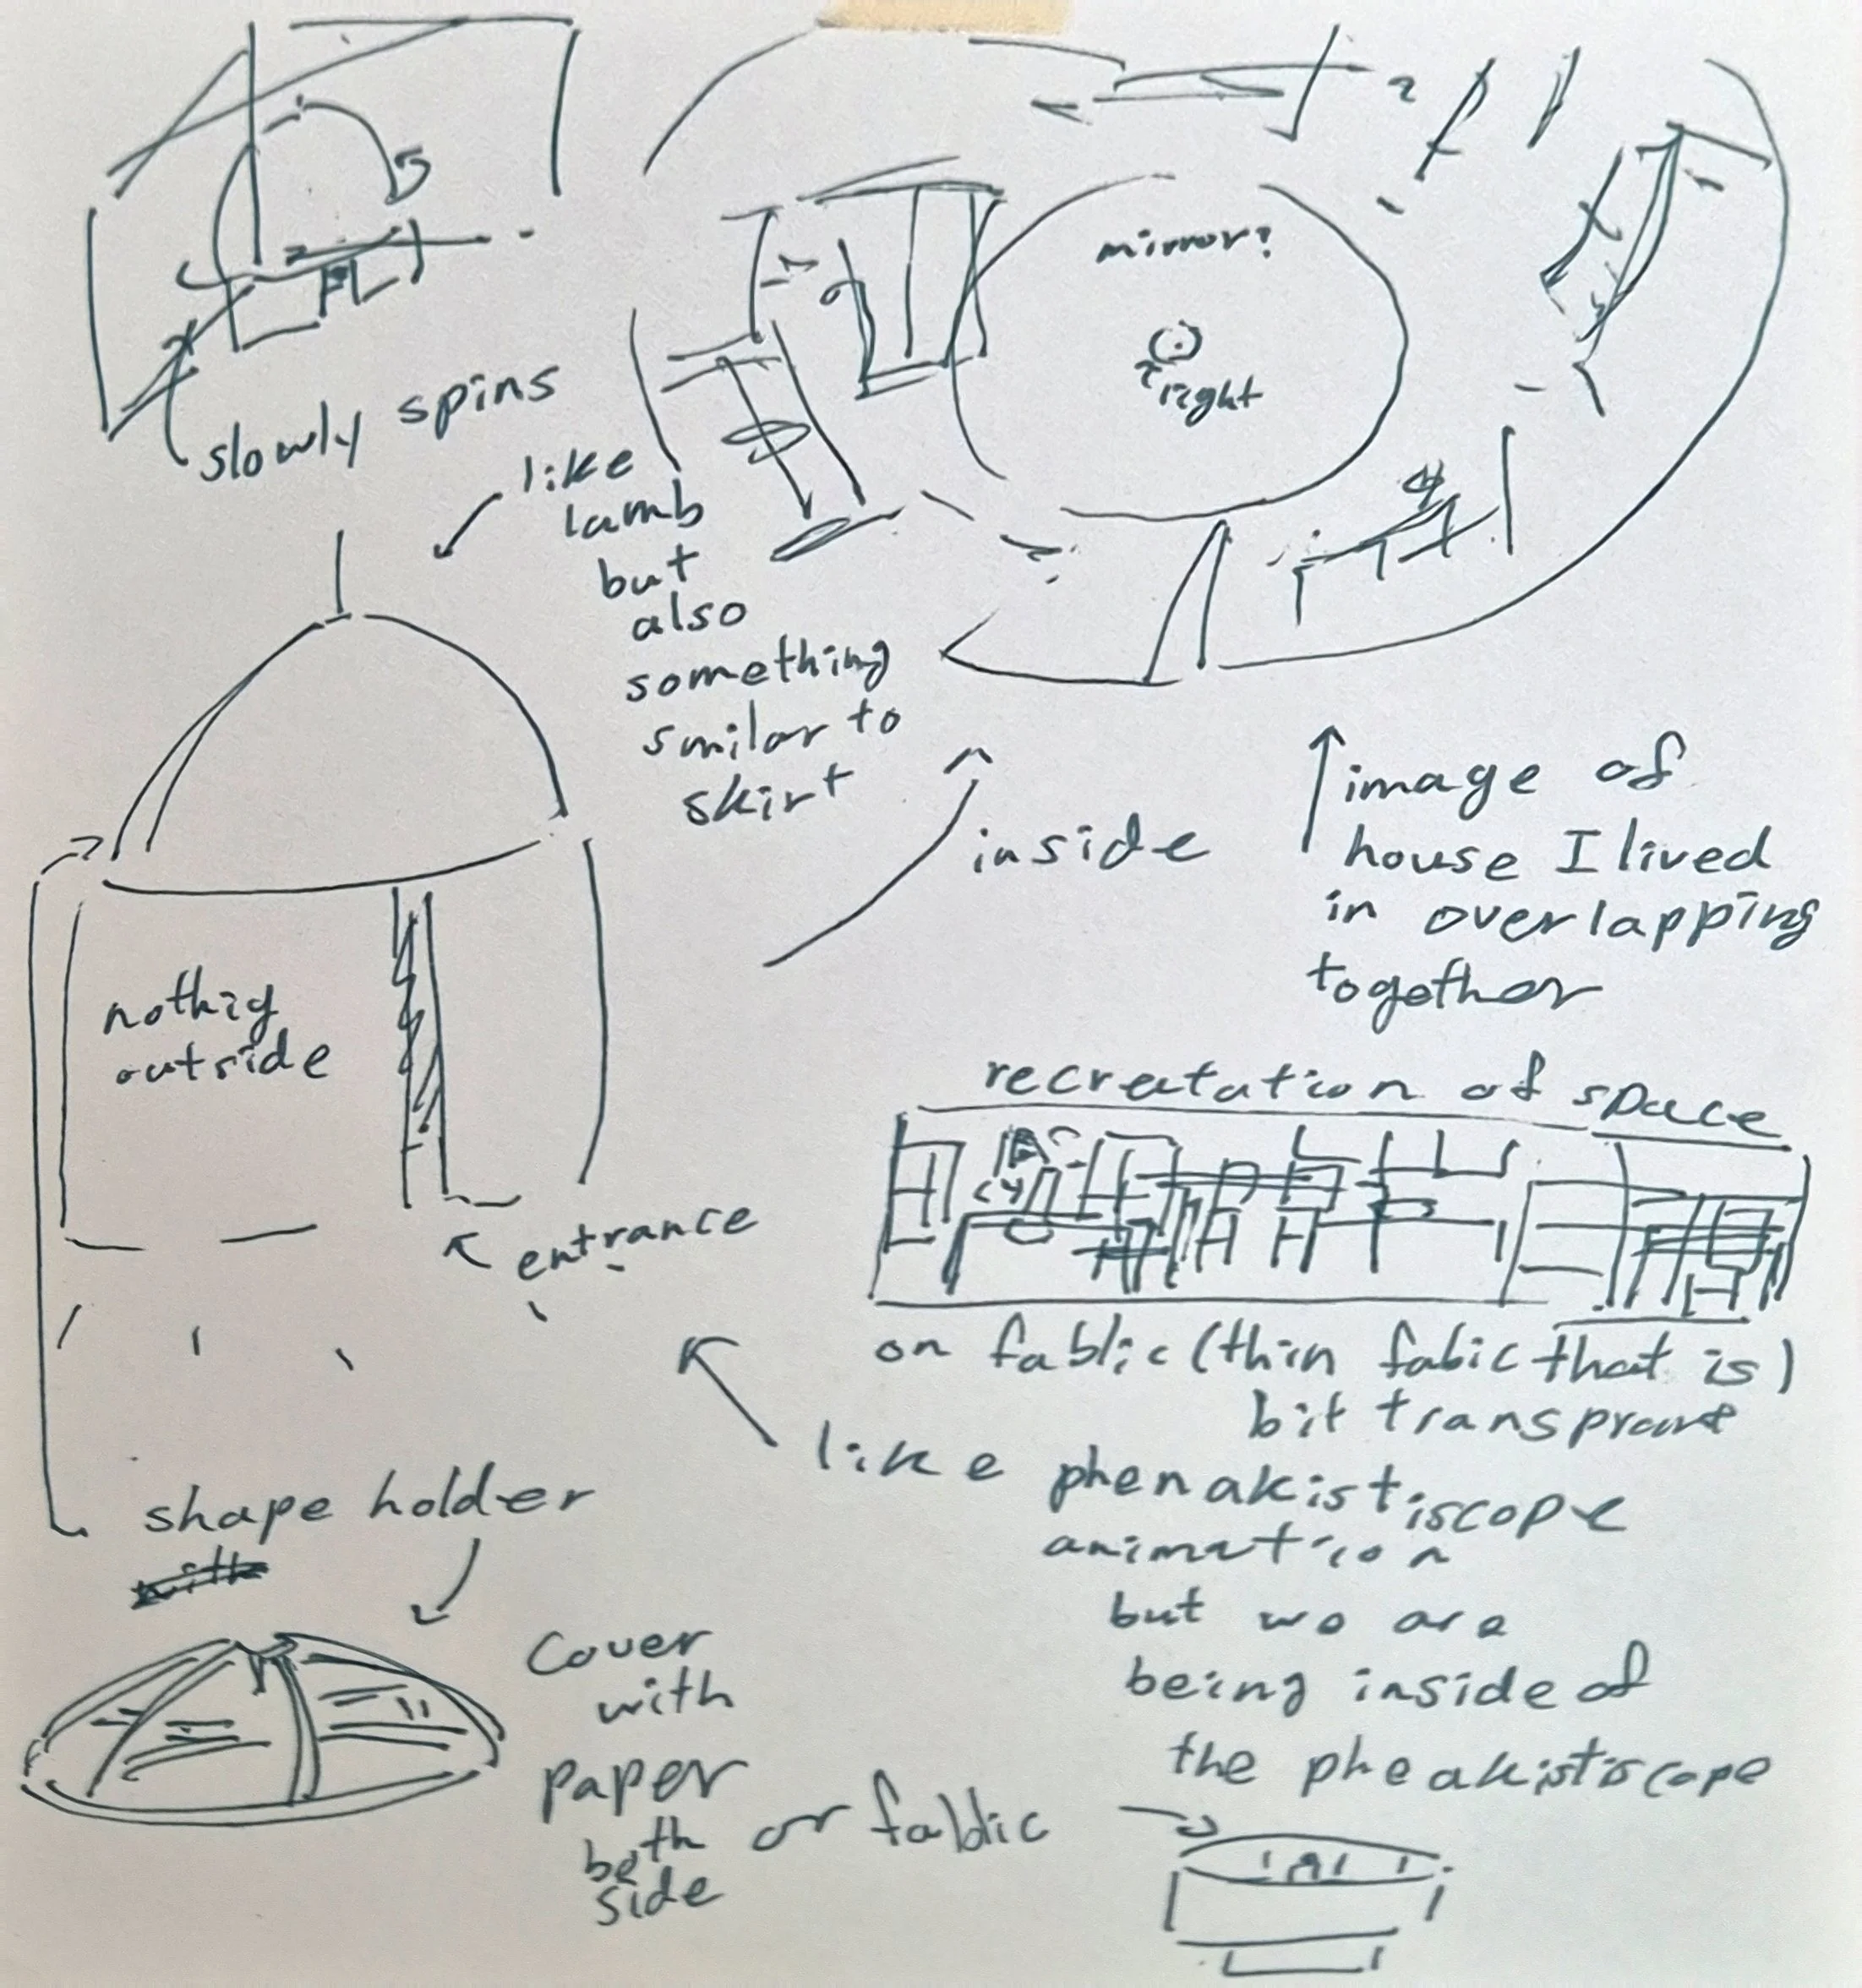 slowly spins
mirror?
light
like
lamb
but
also
something
smilar to
skirt
inside
image of
house I lived
in overlapping
together
nothig
outside
entrance
recreatation of space
on fablic (thin fabic that is)
bit transprant
like phenakistiscope
animation
but we are
being inside of
the pheakistiscope
shape holder
with
Cover
with
paper
both
side
or fablic